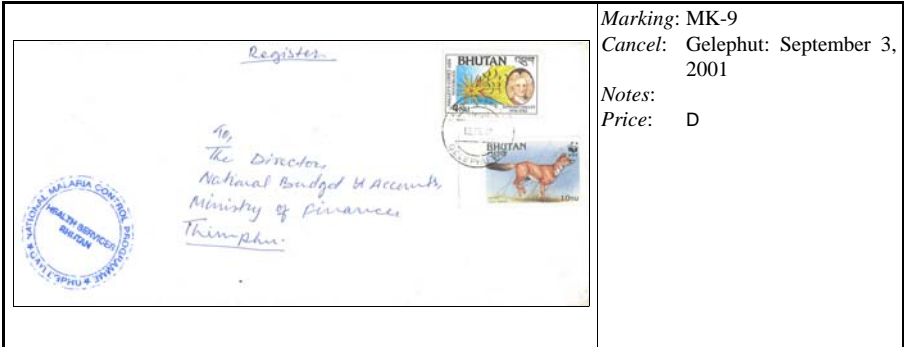 Register
BHUTAN
BHUTAN
10NU
GELEPHU
To,
The Director,
National Budget & Accounts,
Ministry of Finance
Thimphu.
NATIONAL MALARIA CONTROL PROGRAMME
HEALTH SERVICES
BHUTAN
GAYLEGPHU
Marking: MK-9
Cancel: Gelephut: September 3,
2001
Notes:
Price: D